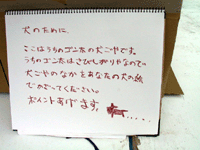 犬のために、
ここはうちのゴン太の犬ごやです。
うちのゴン太はさびしがりやなので
犬ごやのなかをあなたの犬の絵
でかざってください。
ポイントあげます。